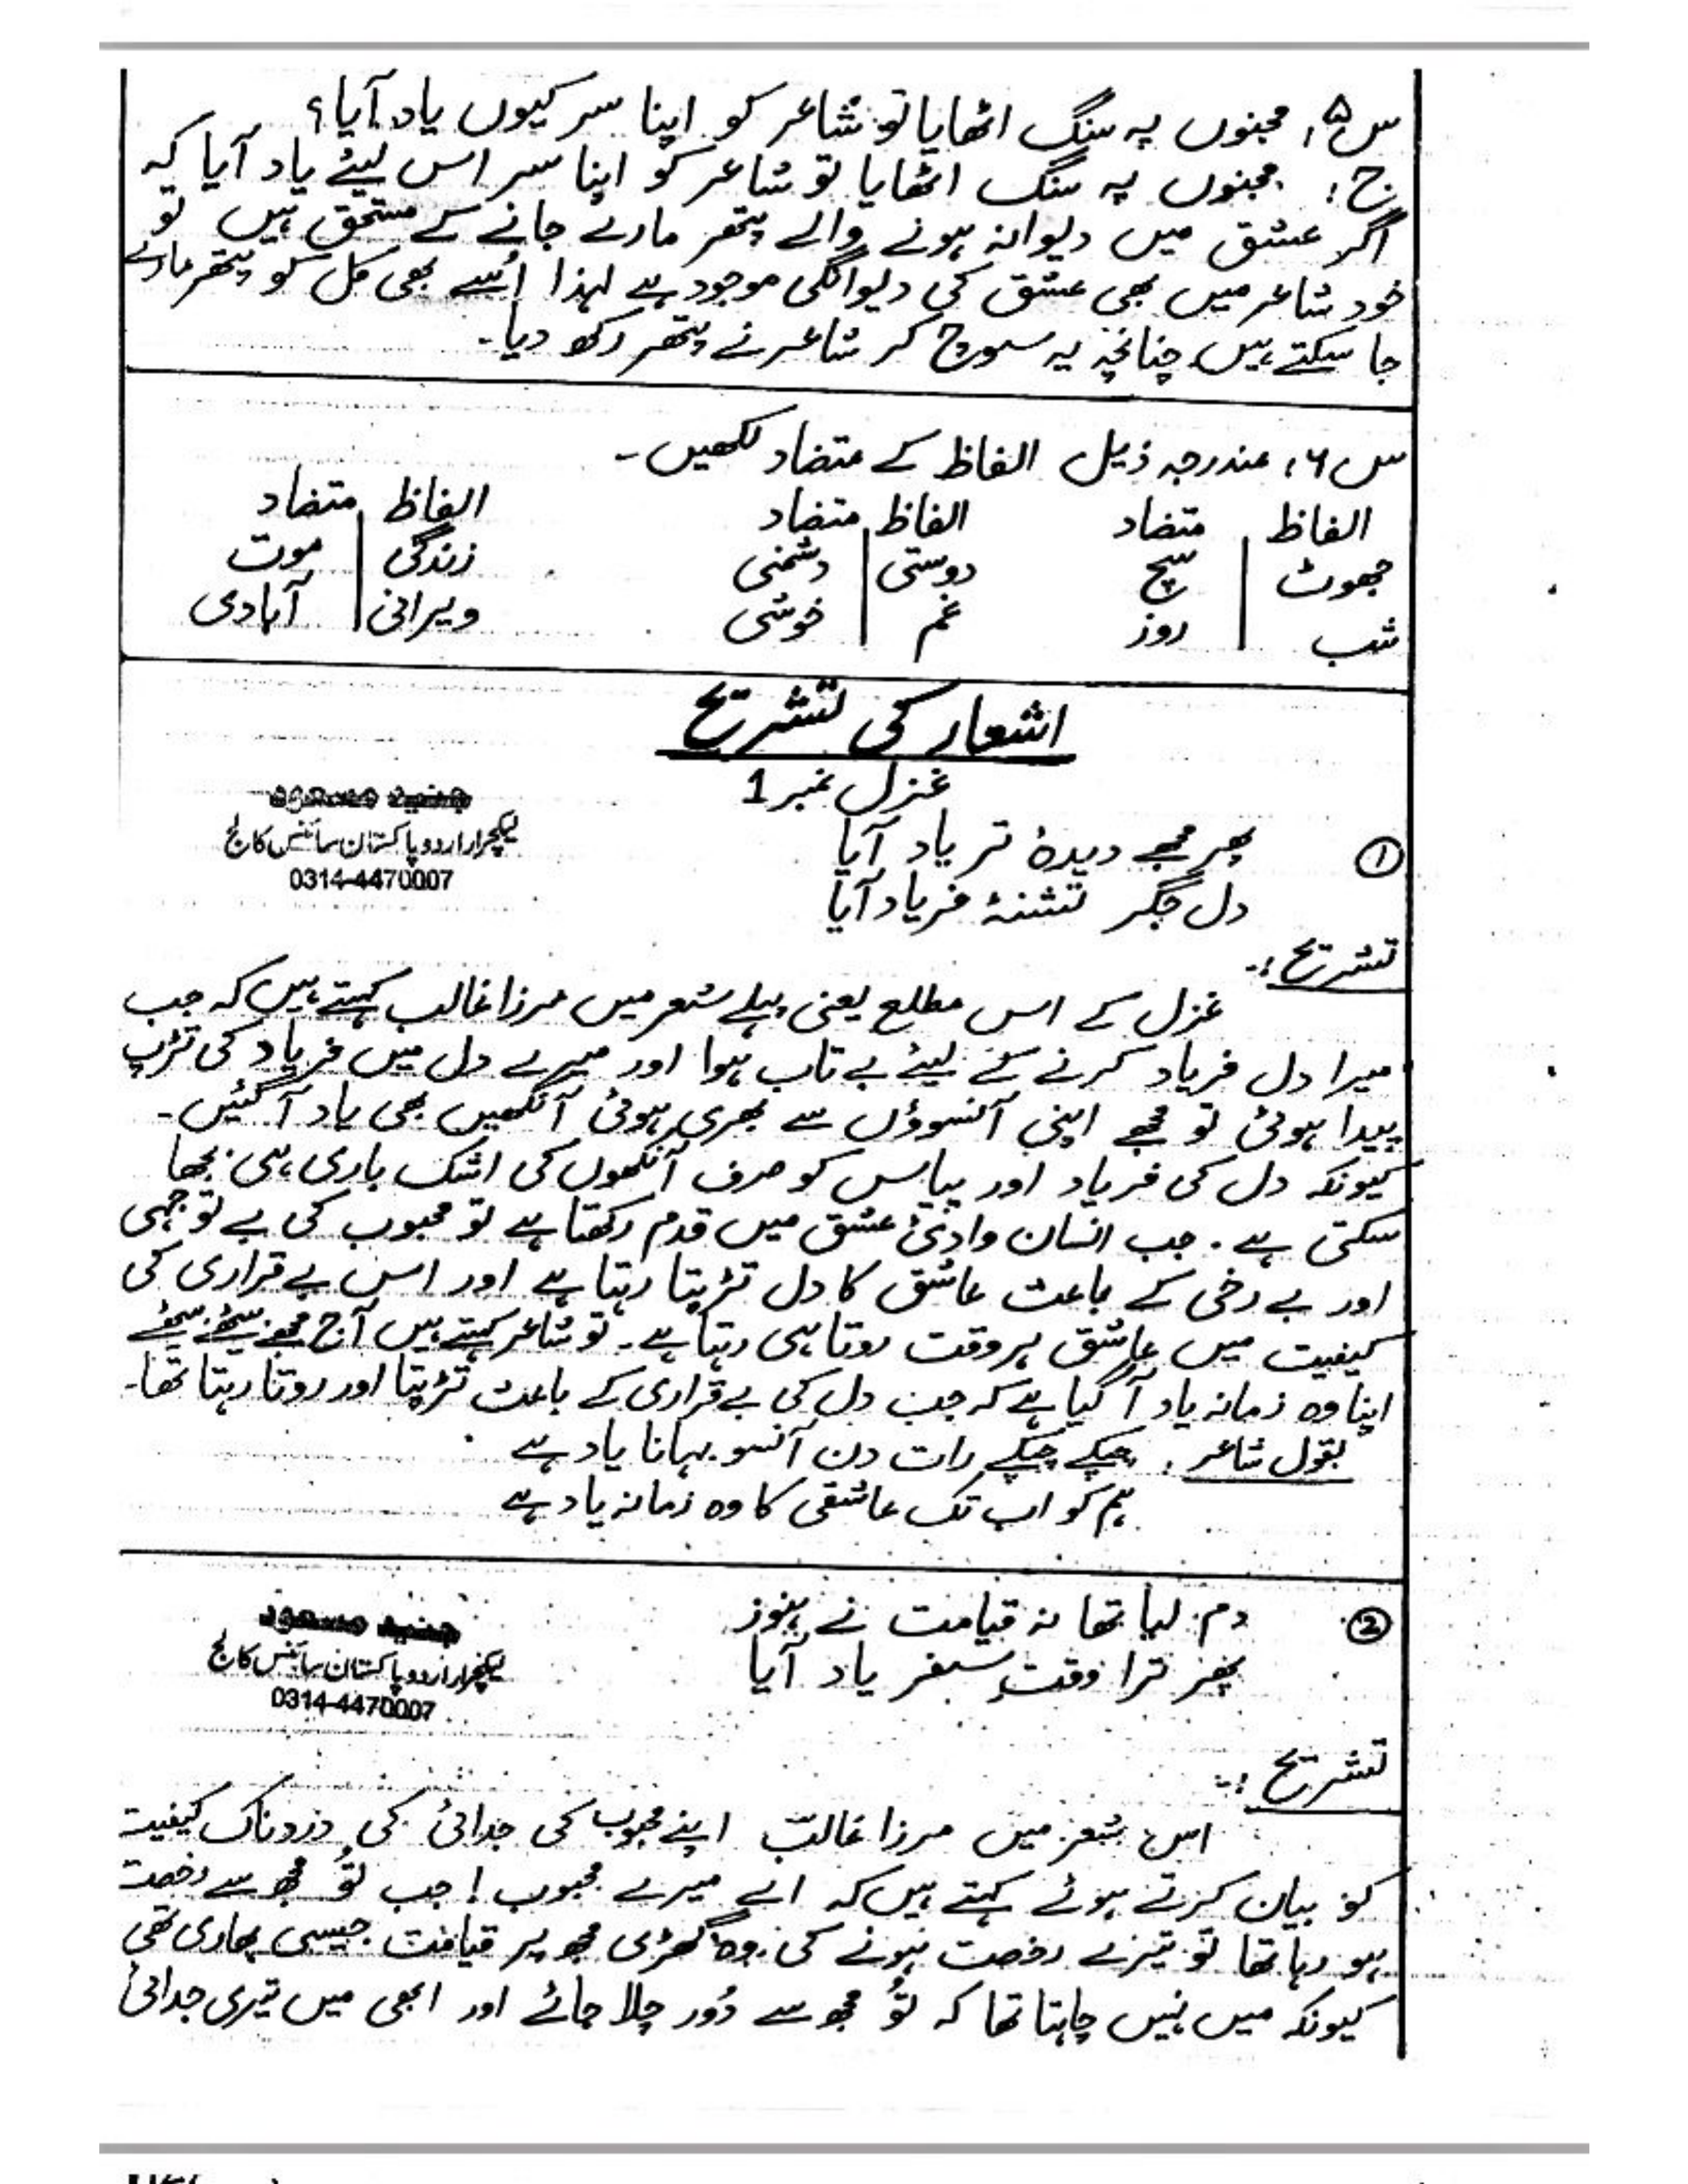 س۵: مجنوں پہ سنگ اٹھایا تو شاعر کو اپنا سر کیوں یاد آیا؟
ج: مجنوں پہ سنگ اٹھایا تو شاعر کو اپنا سر اس لیئے یاد آیا کہ
اگر عشق میں دیوانہ ہونے والے پتھر مارے جانے کے مستحق ہیں تو
خود شاعر میں بھی عشق کی دیوانگی موجود ہے لہذا اُسے بھی کل کو پتھر مارے
جا سکتے ہیں چنانچہ یہ سوچ کر شاعر نے پتھر رکھ دیا۔
س۶: مندرجہ ذیل الفاظ کے متضاد لکھیں۔
الفاظ متضاد الفاظ متضاد الفاظ متضاد
جھوٹ سچ دوستی دشمنی زندگی موت
شب روز غم خوشی ویرانی آبادی
اشعار کی تشریح
غزل نمبر 1
① پھر مجھے دیدۂ تر یاد آیا
دل جگر تشنۂ فریاد آیا
جنید مسعود
لیکچرار اردو پاکستان سائنس کالج
0314-4470007
تشریح:-
غزل کے اس مطلع یعنی پہلے شعر میں مرزا غالب کہتے ہیں کہ جب
میرا دل فریاد کرنے کے لیئے بے تاب ہوا اور میرے دل میں فریاد کی تڑپ
پیدا ہوئی تو مجھے اپنی آنسوؤں سے بھری ہوئی آنکھیں بھی یاد آ گئیں۔
کیونکہ دل کی فریاد اور پیاس کو صرف آنکھوں کی اشک باری ہی بجھا
سکتی ہے۔ جب انسان وادئ عشق میں قدم رکھتا ہے تو محبوب کی بے توجہی
اور بے رخی کے باعث عاشق کا دل تڑپتا رہتا ہے اور اس بے قراری کی
کیفیت میں عاشق ہر وقت روتا ہی رہتا ہے۔ تو شاعر کہتے ہیں آج مجھے بیٹھے بیٹھے
اپنا وہ زمانہ یاد آ گیا ہے کہ جب دل کی بے قراری کے باعث تڑپتا اور روتا رہتا تھا۔
بقول شاعر: چپکے چپکے رات دن آنسو بہانا یاد ہے
ہم کو اب تک عاشقی کا وہ زمانہ یاد ہے
② دم لیا تھا نہ قیامت نے ہنوز
پھر ترا وقتِ سفر یاد آیا
جنید مسعود
لیکچرار اردو پاکستان سائنس کالج
0314-4470007
تشریح:-
اس شعر میں مرزا غالبؔ اپنے محبوب کی جدائی کی دردناک کیفیت
کو بیان کرتے ہوئے کہتے ہیں کہ اے میرے محبوب! جب تُو مجھ سے رخصت
ہو رہا تھا تو تیرے رخصت ہونے کی وہ گھڑی مجھ پر قیامت جیسی بھاری تھی
کیونکہ میں نہیں چاہتا تھا کہ تُو مجھ سے دُور چلا جائے اور ابھی میں تیری جدائی